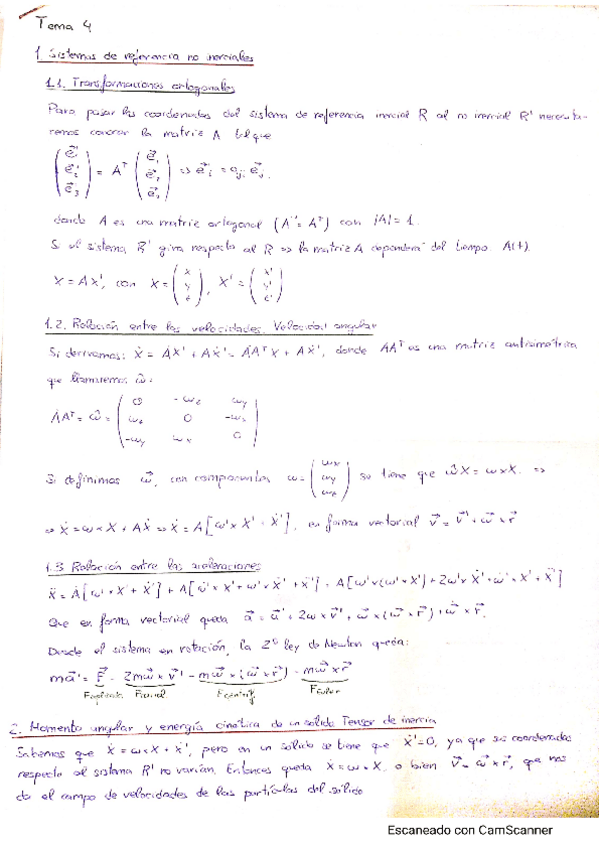 Tema 4
1 Sistemas de referencia no inerciales
1.1. Transformaciones ortogonales
Para pasar las coordenadas del sistema de referencia inercial R al no inercial R' necesita-
remos conocer la matriz A tal que
(e⃗'₁ e⃗'₂ e⃗'₃) = Aᵀ (e⃗₁ e⃗₂ e⃗₃) => e⃗'ᵢ = aⱼᵢ e⃗ⱼ.
donde A es una matriz ortogonal (A⁻¹ = Aᵀ) con |A| = 1.
Si el sistema R' gira respecto al R => la matriz A dependerá del tiempo A(t).
X = AX', con X = (x y z), X' = (x' y' z')
1.2. Relación entre las velocidades. Velocidad angular
Si derivamos: Ẋ = ȦX' + AẊ' = ȦAᵀX + AẊ', donde ȦAᵀ es una matriz antisimétrica
que llamaremos ω̂:
ȦAᵀ = ω̂ = (0 -ωz ωy; ωz 0 -ωx; -ωy ωx 0)
Si definimos ω⃗, con componentes ω = (ωx ωy ωz) se tiene que ω̂X = ω×X. =>
=> Ẋ = ω×X + AẊ => Ẋ = A[ω'×X' + Ẋ'], en forma vectorial v⃗ = v⃗' + ω⃗×r⃗
1.3 Relación entre las aceleraciones
Ẍ = Ȧ[ω'×X' + Ẋ'] + A[ω̇'×X' + ω'×Ẋ' + Ẍ'] = A[ω'×(ω'×X') + 2ω'×Ẋ' + ω̇'×X' + Ẍ']
Que en forma vectorial queda a⃗ = a⃗' + 2ω×v⃗' + ω⃗×(ω⃗×r⃗) + ω̇⃗×r⃗.
Desde el sistema en rotación, la 2ª ley de Newton queda:
ma⃗' = F⃗ - 2mω⃗×v⃗' - mω⃗×(ω⃗×r⃗) - mω̇⃗×r⃗
Fcentrif Feuler
2. Momento angular y energía cinética de un sólido. Tensor de inercia
Sabemos que Ẋ = ω×X + Ẋ', pero en un sólido se tiene que Ẋ'=0, ya que sus coordenadas
respecto al sistema R' no varían. Entonces queda Ẋ = ω×X, o bien v⃗ = ω⃗×r⃗, que nos
da el campo de velocidades de las partículas del sólido
Escaneado con CamScanner